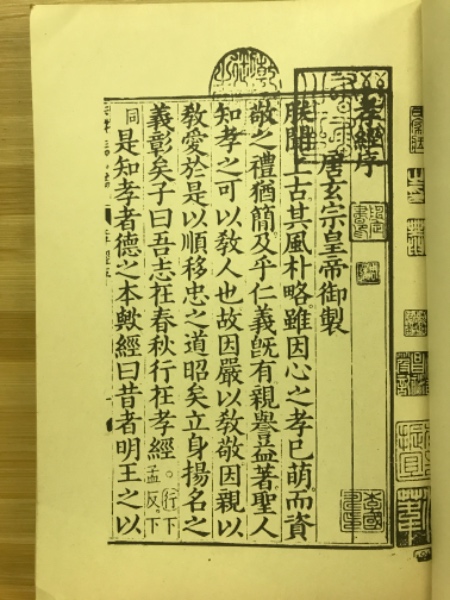 孝經序
唐玄宗皇帝御製
朕聞上古其風朴略。雖因心之孝已萌而資
敬之禮猶簡。及乎仁義旣有親譽益著。聖人
知孝之可以敎人也故因嚴以敎敬因親以
敎愛於是以順移忠之道昭矣立身揚名之
義彰矣子曰吾志在春秋行在孝經。行下孟反。下
同是知孝者德之本歟經曰昔者明王之以